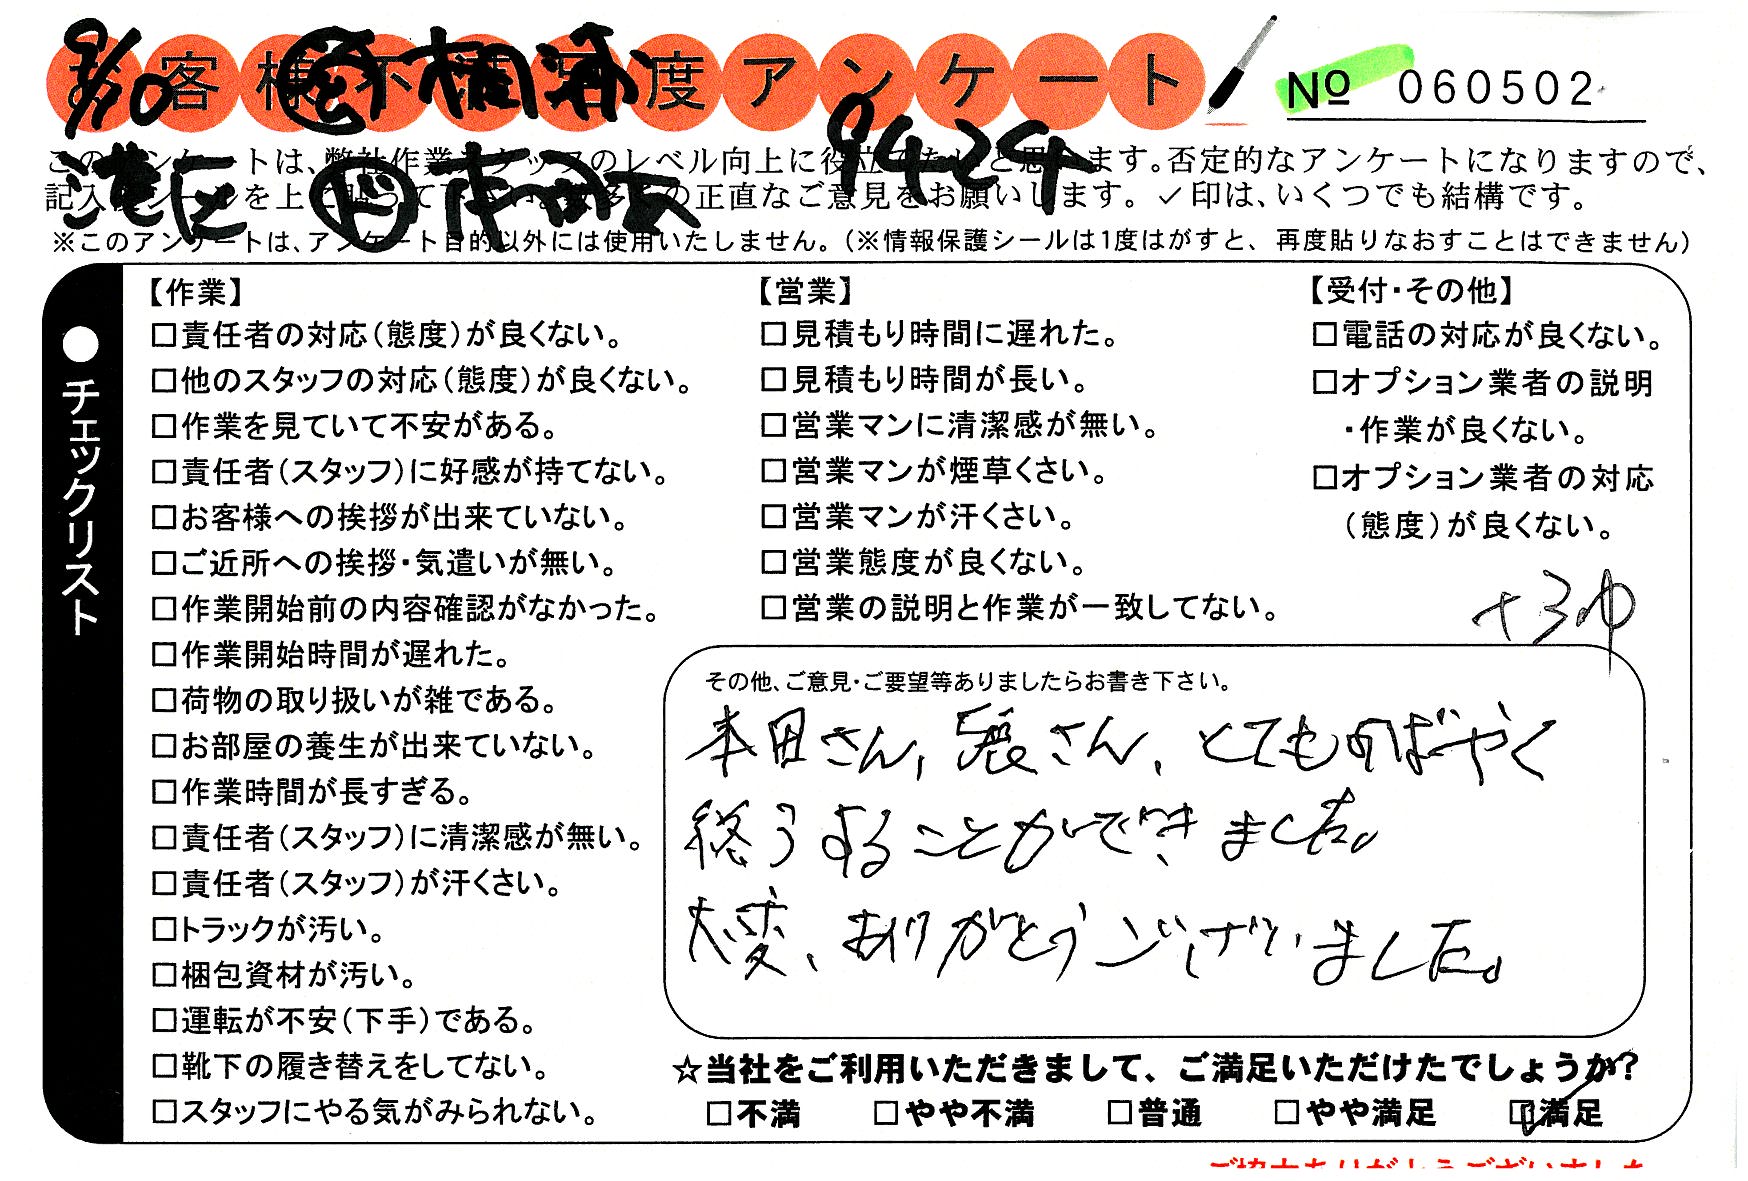 お客様不満度アンケート
No 060502
9/10
9424
港区
このアンケートは、弊社作業スタッフのレベル向上に役立てたいと思います。否定的なアンケートになりますので、
記入後シールを上に貼って下さい。数多くの正直なご意見をお願いします。✓印は、いくつでも結構です。
※このアンケートは、アンケート目的以外には使用いたしません。(※情報保護シールは1度はがすと、再度貼りなおすことはできません)
●チェックリスト
【作業】
□責任者の対応(態度)が良くない。
□他のスタッフの対応(態度)が良くない。
□作業を見ていて不安がある。
□責任者(スタッフ)に好感が持てない。
□お客様への挨拶が出来ていない。
□ご近所への挨拶・気遣いが無い。
□作業開始前の内容確認がなかった。
□作業開始時間が遅れた。
□荷物の取り扱いが雑である。
□お部屋の養生が出来ていない。
□作業時間が長すぎる。
□責任者(スタッフ)に清潔感が無い。
□責任者(スタッフ)が汗くさい。
□トラックが汚い。
□梱包資材が汚い。
□運転が不安(下手)である。
□靴下の履き替えをしてない。
□スタッフにやる気がみられない。
【営業】
□見積もり時間に遅れた。
□見積もり時間が長い。
□営業マンに清潔感が無い。
□営業マンが煙草くさい。
□営業マンが汗くさい。
□営業態度が良くない。
□営業の説明と作業が一致してない。
【受付・その他】
□電話の対応が良くない。
□オプション業者の説明
・作業が良くない。
□オプション業者の対応
(態度)が良くない。
その他、ご意見・ご要望等ありましたらお書き下さい。
本田さん、張さん、とてもすばやく
終うすることができました。
大変、ありがとうございました。
☆当社をご利用いただきまして、ご満足いただけたでしょうか?
□不満 □やや不満 □普通 □やや満足 ☑満足
ご協力ありがとうございました